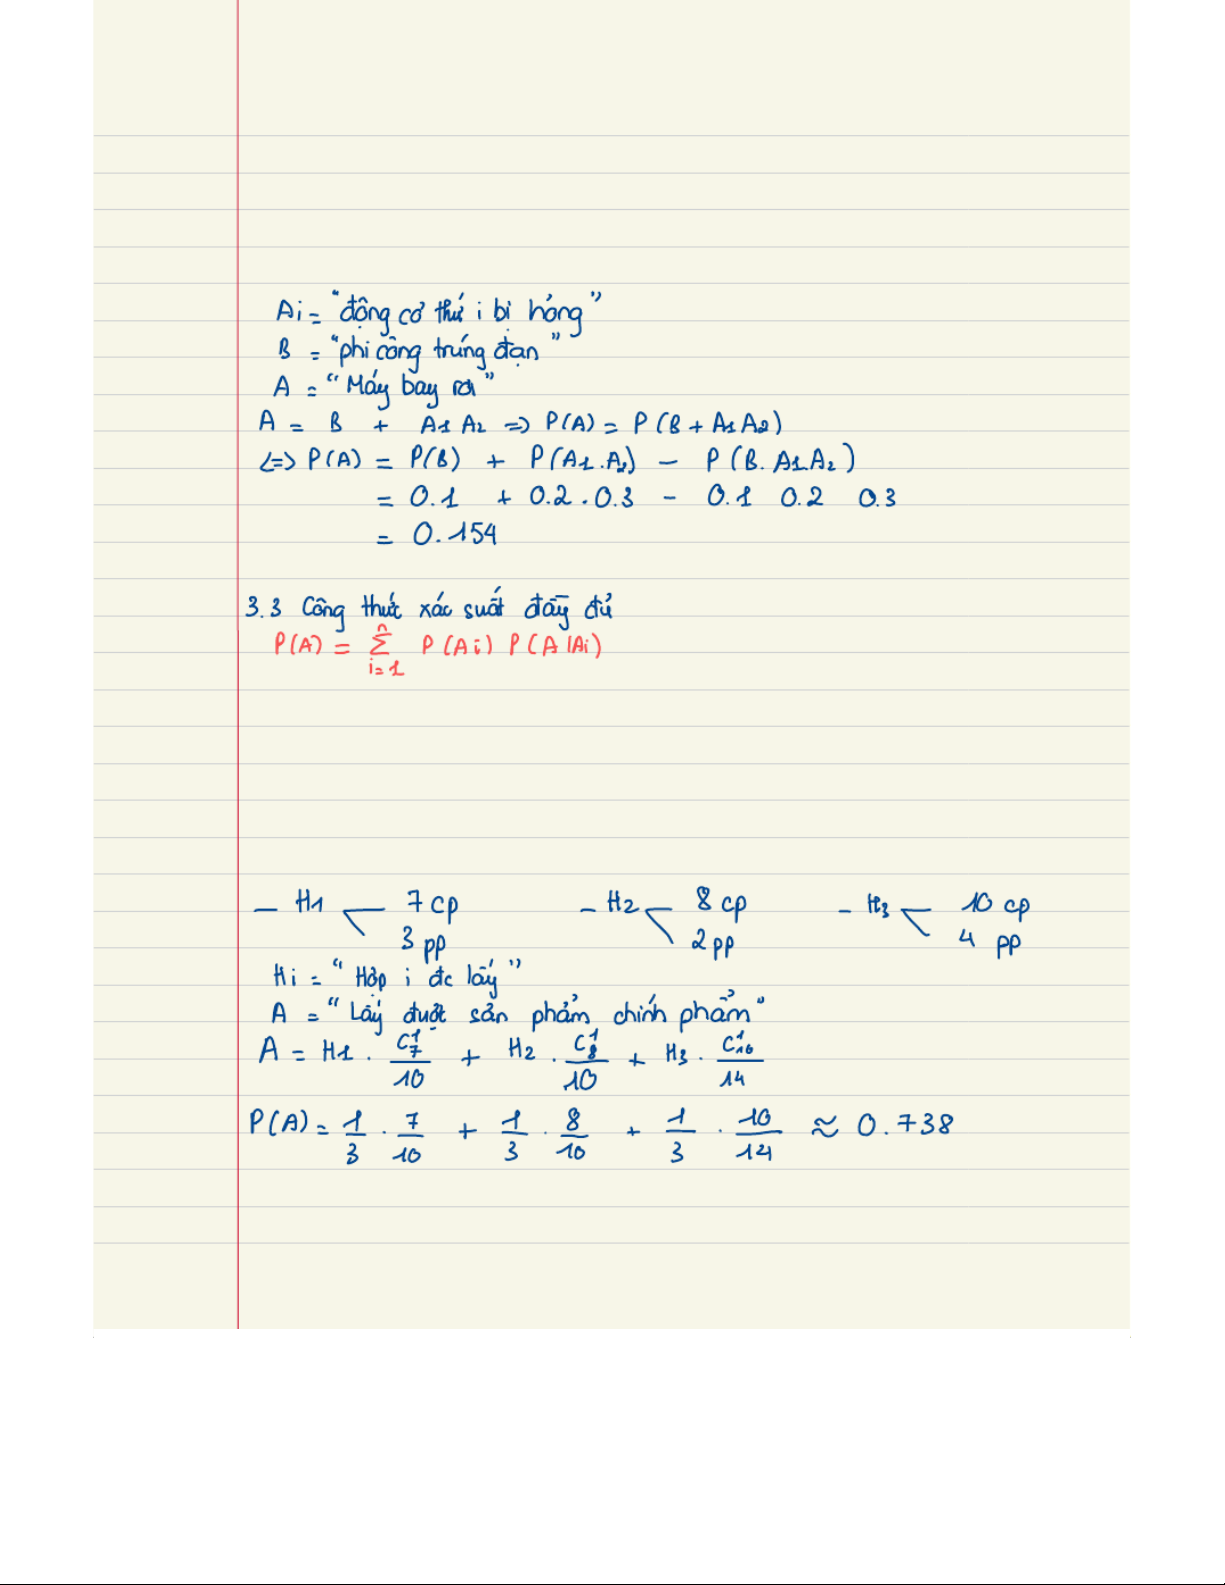 Ai = "động cơ thứ i bị hỏng"
B = "phi công trúng đạn"
A = "Máy bay rơi"
A = B + A1 A2 => P(A) = P(B + A1 A2)
<=> P(A) = P(B) + P(A1.A2) - P(B.A1.A2)
= 0.1 + 0.2.0.3 - 0.1 0.2 0.3
= 0.154
3.3 Công thức xác suất đầy đủ
P(A) = n Σ i=1 P(Ai) P(A|Ai)
- H1 7 cp - H2 8 cp - H3 10 cp
3 pp 2 pp 4 pp
Hi = "Hộp i đc lấy"
A = "Lấy được sản phẩm chính phẩm"
A = H1 . C¹₇/10 + H2 . C¹₈/10 + H3 . C¹₁₀/14
P(A) = 1/3 . 7/10 + 1/3 . 8/10 + 1/3 . 10/14 ≈ 0.738